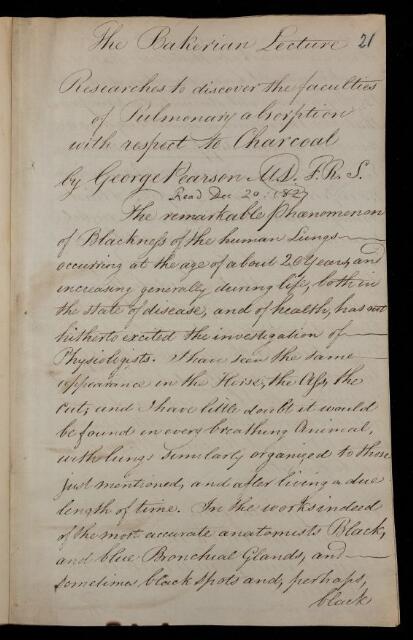 The Bakerian Lecture 21
Researches to discover the faculties
of Pulmonary absorption
with respect to Charcoal
by George Pearson M.D. F.R.S.
Read Dec 20: 1827
The remarkable phænomenon
of Blackness of the human Lungs
occurring at the age of about 20 Years, and
increasing generally during life, both in
the state of disease, and of health, has not
hitherto excited the investigation of
Physiologists. I have seen the same
appearance in the Horse, the Ass, the
cat; and I have little doubt it would
be found in every breathing Animal,
with lungs similarly organized to those
just mentioned, and after living a due
length of time. In the works indeed
of the most accurate anatomists Black,
and blue Bronchial Glands, and
sometimes black spots and, perhaps,
black